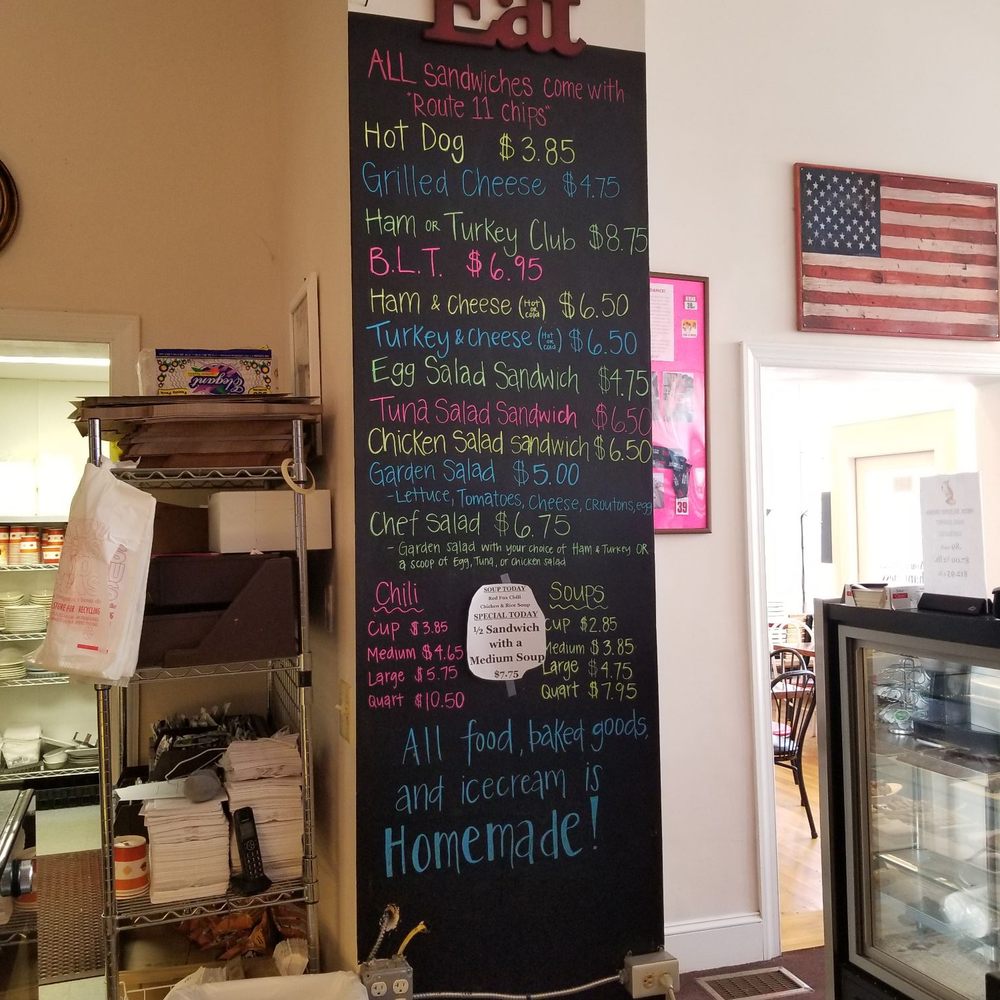 Eat
ALL Sandwiches come with
"Route 11 chips"
Hot Dog $3.85
Grilled Cheese $4.75
Ham OR Turkey Club $8.75
B.L.T. $6.95
Ham & Cheese (Hot or cold) $6.50
Turkey & Cheese (Hot or cold) $6.50
Egg Salad Sandwich $4.75
Tuna Salad Sandwich $6.50
Chicken Salad Sandwich $6.50
Garden Salad $5.00
-Lettuce, Tomatoes, Cheese, croutons, egg
Chef Salad $6.75
- Garden salad with your choice of Ham & Turkey OR
a scoop of Egg, Tuna, or chicken salad
Chili
Cup $3.85
Medium $4.65
Large $5.75
Quart $10.50
SOUP TODAY
Red Fox Chili
Chicken & Rice Soup
SPECIAL TODAY
1/2 Sandwich
with a
Medium Soup
$7.75
Soups
Cup $2.85
Medium $3.85
Large $4.75
Quart $7.95
All food, baked goods,
and icecream is
Homemade!
Elegant
39